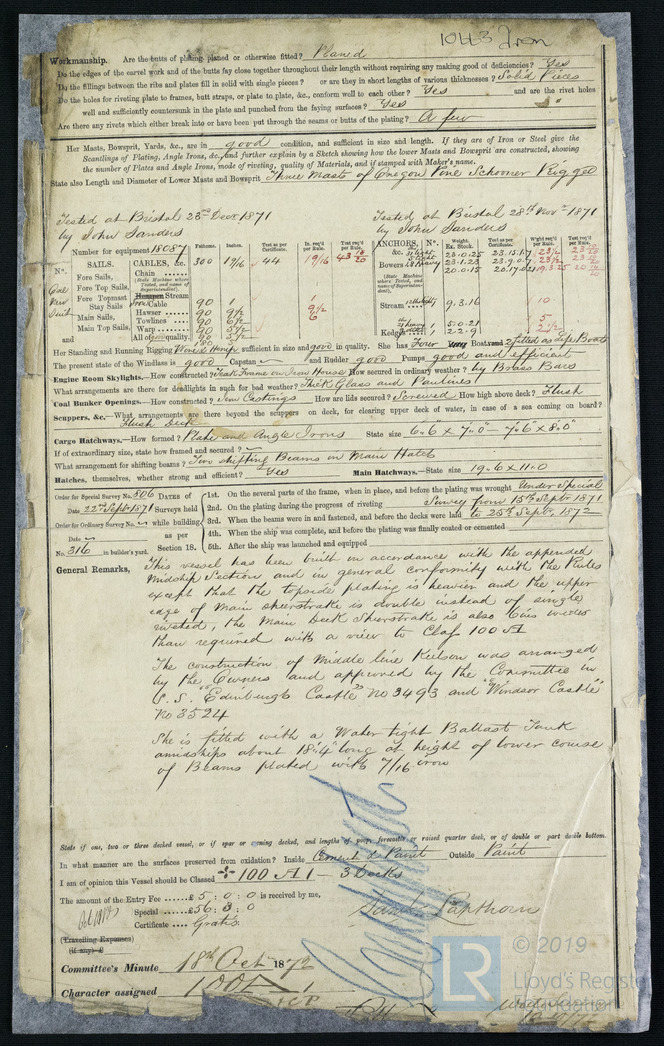 1043 Iron
Workmanship. Are the butts of plating planed or otherwise fitted? Planed
Do the edges of the carvel work and of the butts fay close together throughout their length without requiring any making good of deficiencies? Yes
Do the fillings between the ribs and plates fill in solid with single pieces? or are they in short lengths of various thicknesses? Solid Pieces
Do the holes for riveting plate to frames, butt straps, or plate to plate, &c., conform well to each other? Yes and are the rivet holes
well and sufficiently countersunk in the plate and punched from the faying surfaces? Yes "
Are there any rivets which either break into or have been put through the seams or butts of the plating? A few
Her Masts, Bowsprit, Yards, &c., are in good condition, and sufficient in size and length. If they are of Iron or Steel give the
Scantlings of Plating, Angle Irons, &c., and further explain by a Sketch showing how the lower Masts and Bowsprit are constructed, showing
the number of Plates and Angle Irons, mode of riveting, quality of Materials, and if stamped with Maker's name.
State also Length and Diameter of Lower Masts and Bowsprit Three Masts of Oregon Pine Schooner Rigged
Tested at Bristol 23rd Decr 1871 Tested at Bristol 28th Novr 1871
by John Sanders by John Sanders
Number for equipment 18087 Fathoms. Inches. Test as per Certificate. In. req'd per Rule. Test req'd per Rule. ANCHORS, &c. No. Weight. Ex. Stock. Test as per Certificate. Wght req'd per Rule. Test req'd per Rule.
No. SAILS. CABLES, &c. 300 1 9/16 44 1 9/16 Bowers 23.0.25 23.15.1.7 23 1/2
Fore Sails, Chain 23.1.23 23 1/2
Fore Top Sails, (State Machine where Tested, and name of Superintendent). 20.0.15
Fore Topmast Hempen Stream
Stay Sails Iron Cable 90 1 1 Stream 9.3.16 10
Main Sails, Hawser 90
Main Top Sails, Towlines 90 6
and Warp 90 Kedges 5.0.21 5
All of good quality. 2.2.9 2 1/2
Her Standing and Running Rigging Wire & Hemp sufficient in size and good in quality. She has Four Boats and 2 fitted as Life Boats
The present state of the Windlass is good Capstan and Rudder good Pumps good and efficient
Engine Room Skylights.—How constructed? Teak Frame on Iron House How secured in ordinary weather? by Brass Bars
What arrangements are there for deadlights in such for bad weather? Thick Glass and Paulines
Coal Bunker Openings.—How constructed? Iron Castings How are lids secured? Screwed How high above deck? Flush
Scuppers, &c.—What arrangements are there beyond the scuppers on deck, for clearing upper deck of water, in case of a sea coming on board?
Flush Deck
Cargo Hatchways.—How formed? Plate and Angle Irons State size 6.6 x 7.0 — 7.6 x 8.0
If of extraordinary size, state how framed and secured?
What arrangement for shifting beams? Two shifting Beams in Main Hatch
Hatches, themselves, whether strong and efficient? Yes Main Hatchways.—State size 19.6 x 11.0
Order for Special Survey No. 506 DATES of 1st. On the several parts of the frame, when in place, and before the plating was wrought Under Special
Date 22nd Septr 1871 Surveys held 2nd. On the plating during the progress of riveting Survey from 15th Septr 1871
Order for Ordinary Survey No. while building 3rd. When the beams were in and fastened, and before the decks were laid to 25th Septr 1872
Date as per 4th. When the ship was complete, and before the plating was finally coated or cemented
No. 316 in builder's yard. Section 18. 5th. After the ship was launched and equipped
General Remarks, This vessel has been built in accordance with the appended
Midship Section and in general conformity with the Rules
except that the topside plating is heavier and the upper
edge of main sheerstrake is double instead of single
riveted, the Main Deck Sheerstrake is also 6ins wider
than required with a view to Class 100 A
The construction of Middle line Keelson was arranged
by the Owners and approved by the Committee in
S.S. "Edinburgh Castle" No 3493 and "Windsor Castle"
No 3524
She is fitted with a Water tight Ballast Tank
amidships about 18.4 long at height of lower course
of Beams plated with 7/16 iron
State if one, two or three decked vessel, or if spar or awning decked, and lengths of poop, forecastle, or raised quarter deck, or of double or part double bottom.
In what manner are the surfaces preserved from oxidation? Inside Cement & Paint Outside Paint
I am of opinion this Vessel should be Classed 100 A1 — 3 Decks
The amount of the Entry Fee £ 5 : 0 : 0 is received by me,
Special £ 56 : 3 : 0
Certificate Gratis
(Travelling Expenses)
(if any) £
Committee's Minute 18th Oct 1872
Character assigned 100 A 1
LR © 2019
Lloyd's Register
Foundation